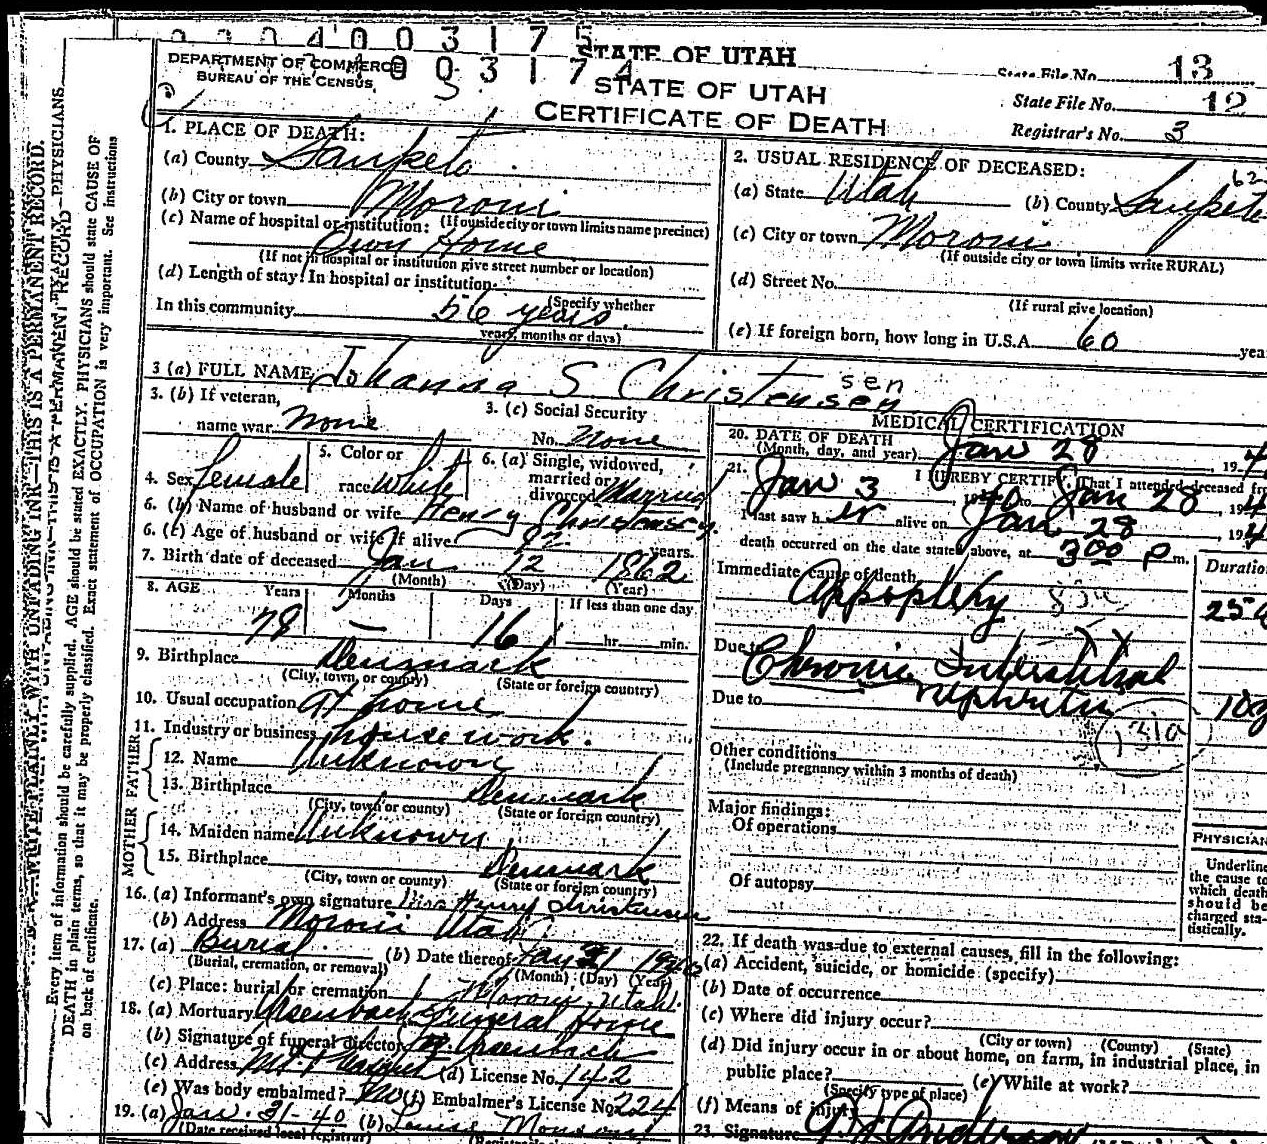 0 0 0 4 0 0 3 1 7 5
STATE OF UTAH
13
DEPARTMENT OF COMMERCE
0 0 3 1 7 4
State File No.
BUREAU OF THE CENSUS
STATE OF UTAH
State File No. 12
CERTIFICATE OF DEATH
Registrar's No. 3
1. PLACE OF DEATH:
(a) County Sanpete
(b) City or town Moroni
(c) Name of hospital or institution: (If outside city or town limits name precinct)
Own Home
(If not in hospital or institution give street number or location)
(d) Length of stay: In hospital or institution
(Specify whether
In this community 56 years
years, months or days)
2. USUAL RESIDENCE OF DECEASED:
62
(a) State Utah (b) County Sanpete
(c) City or town Moroni
(If outside city or town limits write RURAL)
(d) Street No.
(If rural give location)
(e) If foreign born, how long in U.S.A. 60 yea
3 (a) FULL NAME Johanna S. Christensen
sen
3. (b) If veteran,
name war none
3. (c) Social Security
No. None
4. Sex female
5. Color or
race White
6. (a) Single, widowed,
married or
divorced Married
6. (b) Name of husband or wife Henry Christensen
6. (c) Age of husband or wife if alive 82 years.
7. Birth date of deceased Jan 12 1862
(Month) (Day) (Year)
8. AGE Years Months Days If less than one day
78 — 16 hr. min.
9. Birthplace Denmark
(City, town, or county) (State or foreign country)
10. Usual occupation At home
11. Industry or business housework.
FATHER
12. Name Unknown
13. Birthplace Denmark
(City, town or county) (State or foreign country)
MOTHER
14. Maiden name Unknown
15. Birthplace Denmark
(City, town or county) (State or foreign country)
16. (a) Informant's own signature Henry Christensen
(b) Address Moroni Utah
17. (a) Burial (b) Date thereof Jan 31 1940
(Burial, cremation, or removal) (Month) (Day) (Year)
(c) Place: burial or cremation Moroni, Utah.
18. (a) Mortuary Ursenbach Funeral Home
(b) Signature of funeral director Ursenbach
(c) Address Mt Pleasant (d) License No. 142
(e) Was body embalmed? No (f) Embalmer's License No. 224
19. (a) Jan. 31-40 (b) Louise
(Date received local registrar)
MEDICAL CERTIFICATION
20. DATE OF DEATH
(Month, day, and year) Jan 28, 194
21. I HEREBY CERTIFY, That I attended deceased fr
Jan 3 1940 to Jan 28, 194
I last saw her alive on Jan 28 194
death occurred on the date stated above, at 3:00 P m.
Immediate cause of death
Duration
Appoplexy
Due to Chronic Interstitial
nephritis
Due to
131a
Other conditions
(Include pregnancy within 3 months of death)
Major findings:
Of operations
Of autopsy
PHYSICIAN
Underline
the cause to
which death
should be
charged sta-
tistically.
22. If death was due to external causes, fill in the following:
(a) Accident, suicide, or homicide (specify)
(b) Date of occurrence
(c) Where did injury occur?
(City or town) (County) (State)
(d) Did injury occur in or about home, on farm, in industrial place, in
public place? (e) While at work?
(Specify type of place)
(f) Means of injury
23. Signature
N. B.—WRITE PLAINLY, WITH UNFADING INK—THIS IS A PERMANENT RECORD.
Every item of information should be carefully supplied. AGE should be stated EXACTLY. PHYSICIANS should state CAUSE OF
DEATH in plain terms, so that it may be properly classified. Exact statement of OCCUPATION is very important. See Instructions
on back of certificate.